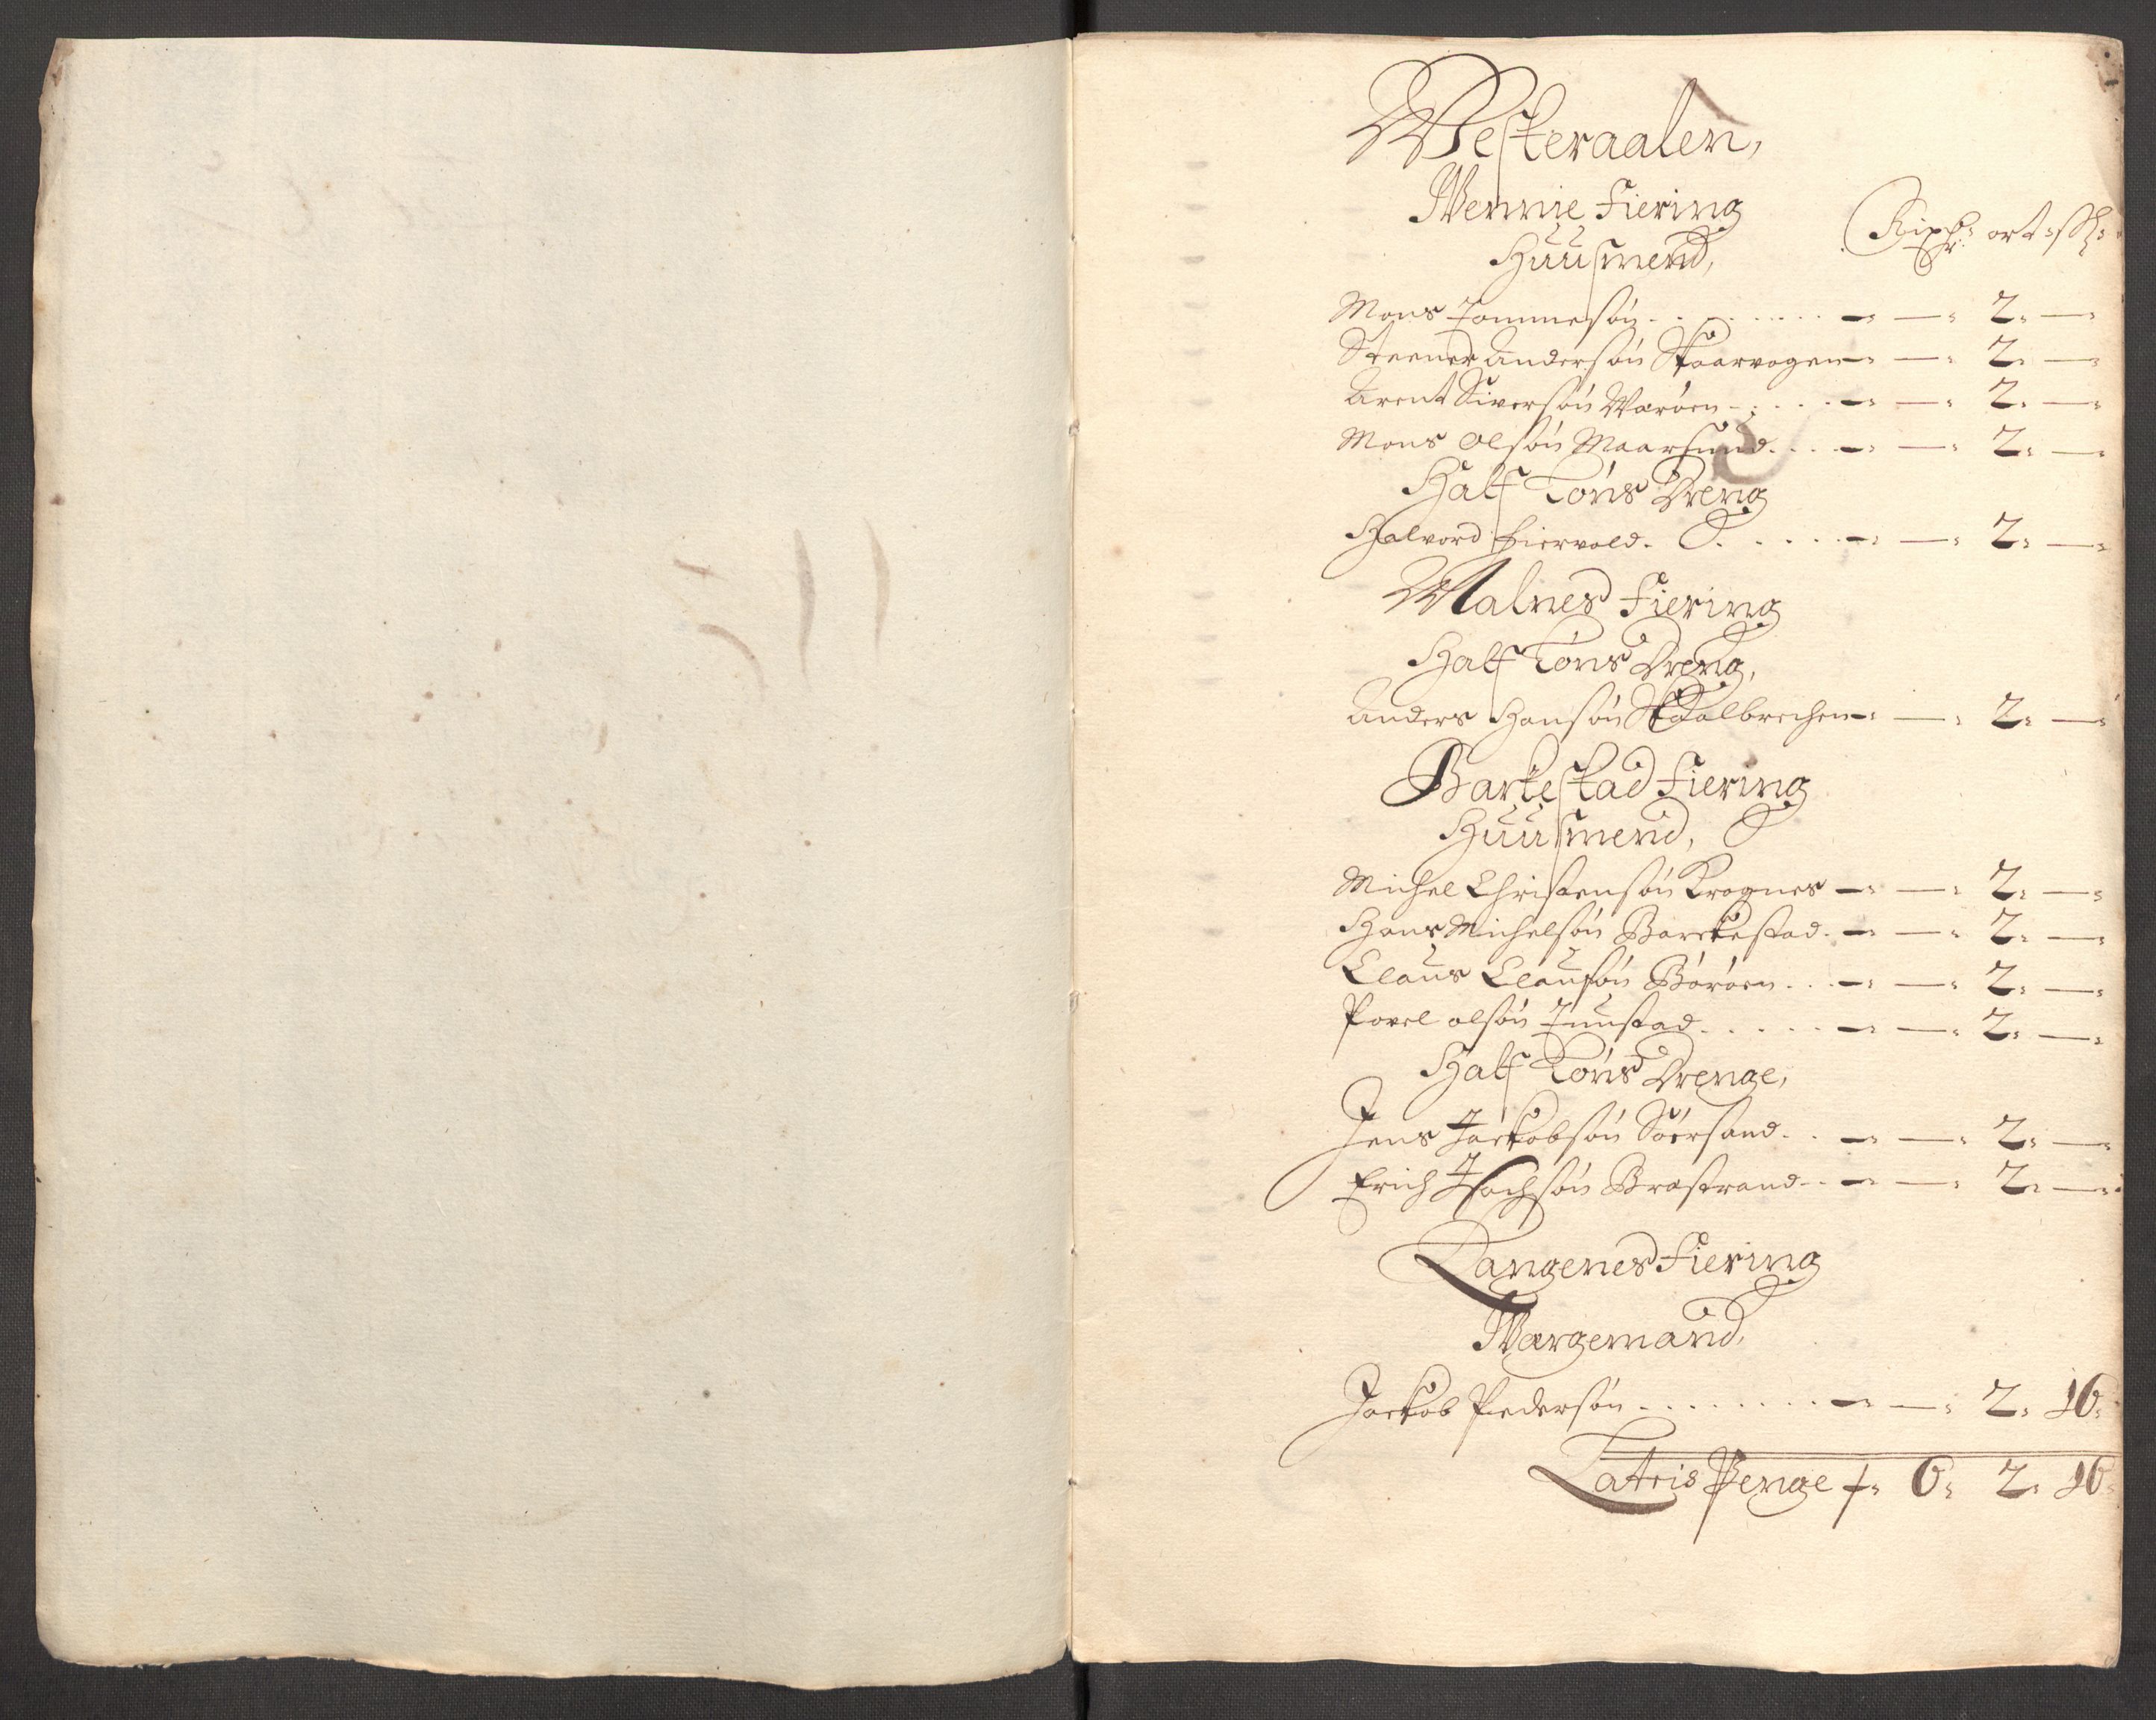 Westeraalen,
Wennie Fiering
Rixdr: ort: sk:
Huusmend,
Mons Tommesøn - - 2: -
Steener Andersøn Skaarvogen - - 2: -
Arent Siversøn Warøen - - 2: -
Mons Olsøn Maarsund - - 2: -
Half Løns Dreng
Halvord Fiervold - - 2: -
Malnes Fiering
Half Løns Dreng,
Anders Hansøn Skaalbrechen - - 2: -
Barkestad Fiering
Huusmend,
Michel Christensøn Krognes - - 2: -
Hans Michelsøn Barckestad - - 2: -
Claus Clausøn Børøen - - 2: -
Povel olsøn Tunstad - - 2: -
Half Løns Drenge,
Jens Jackobsøn Sørsand - - 2: -
Erich Brastrand - - 2: -
Langenes Fiering
Wargemand,
Jackob Pedersøn - - 2: 16:
Latris Penge f: 6: 2: 16: